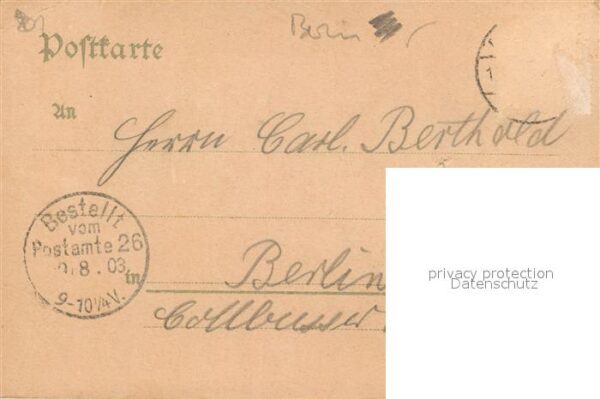 801
Berlin
Postkarte
An
Herrn Carl. Berthold
Bestellt
vom
Postamte 26
8. 03
9-10¼V.
in
Berlin
Cottbusser
privacy protection
Datenschutz